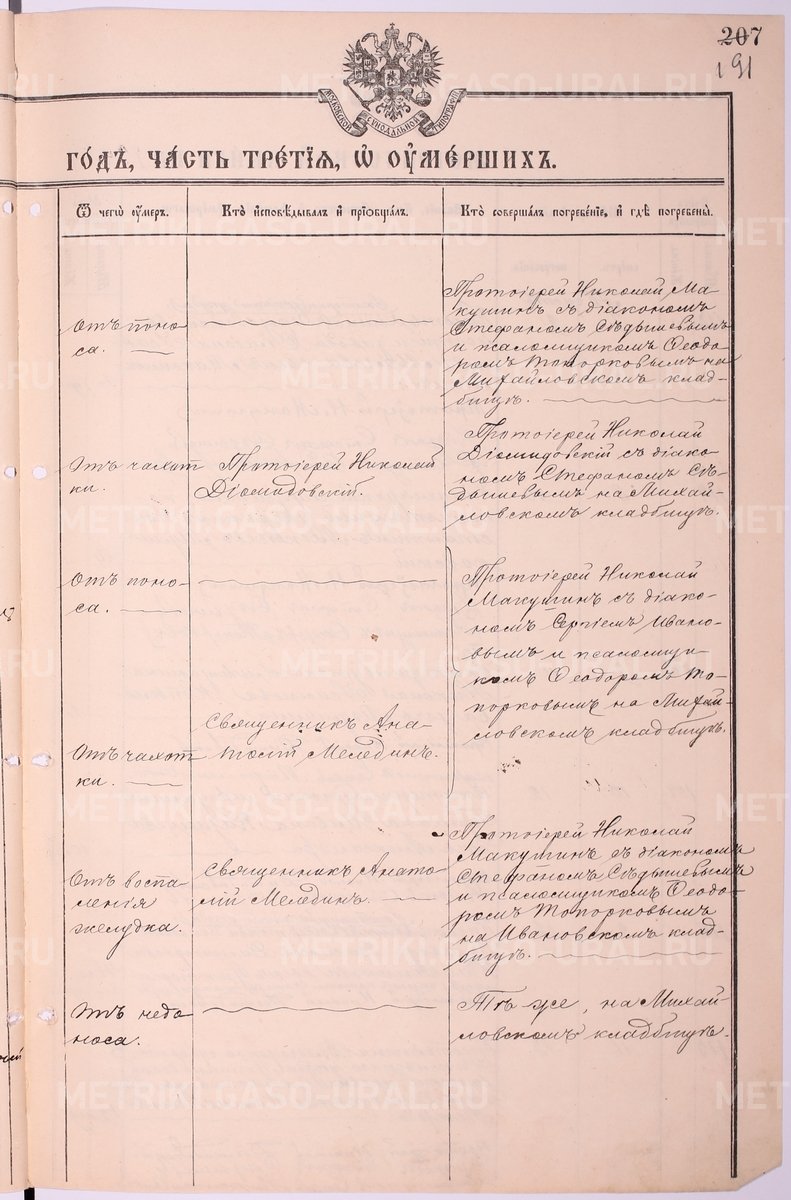 207
191
МОСКОВСКОЙ СѴНОДАЛЬНОЙ ТИПОГРАФІИ
го́дъ, ча́сть тре́тїѧ, ѡ҆ ᲂу҆ме́ршихъ.
Ѿ чегѡ̀ ᲂу҆́меръ.
Кто̀ и҆сповѣ́дывалъ и҆ прїѻбща́лъ.
Кто̀ соверша́лъ погребе́нїе, и҆ гдѣ̀ погребены̀.
Отъ поно-
са.
Протоіерей Николай Ма
кушинъ съ діакономъ
Стефаномъ Сѣдышевымъ
и псаломщикомъ Ѳеодо-
ромъ Топорковымъ на
Михайловскомъ клад-
бищѣ.
Отъ чахот
ки.
Протоіерей Николай
Діомидовскій.
Протоіерей Николай
Діомидовскій съ діако-
номъ Стефаномъ Сѣ-
дышевымъ на Михай-
ловскомъ кладбищѣ.
Отъ поно-
са.
Отъ чахот
ки.
Священникъ Ана-
толій Мелединъ.
Протоіерей Николай
Макушинъ съ діако-
номъ Сергіемъ Ивано-
вымъ и псаломщи-
комъ Ѳеодоромъ То-
порковымъ на Михай-
ловскомъ кладбищѣ.
Отъ воспа-
ленія
желудка.
Священникъ Анато-
лій Мелединъ.
Протоіерей Николай
Макушинъ съ діакономъ
Стефаномъ Сѣдышевымъ
и псаломщикомъ Ѳеодо-
ромъ Топорковымъ
на Ивановскомъ клад-
бищѣ.
Отъ недо
носа.
Тѣ же, на Михай-
ловскомъ кладбищѣ.
METRIKI.GASO-URAL.RU